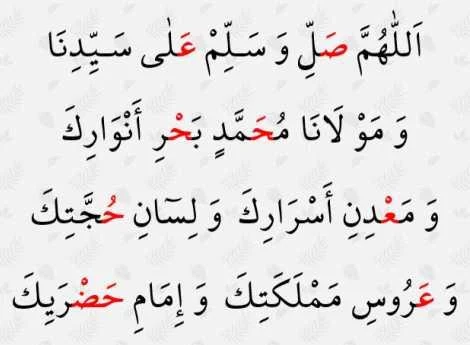 اَللّٰهُمَّ صَلِّ وَ سَـلِّمْ عَلٰى سَـيِّدِنَا
وَ مَوْ لَانَا مُحَمَّدٍ بَحْرِ أَنْوَارِكَ
وَ مَعْدِنِ أَسْرَارِكَ وَ لِسَانِ حُجَّتِكَ
وَ عَرُوسِ مَمْلَكَتِكَ وَ إِمَامِ حَضْرَيِكَ